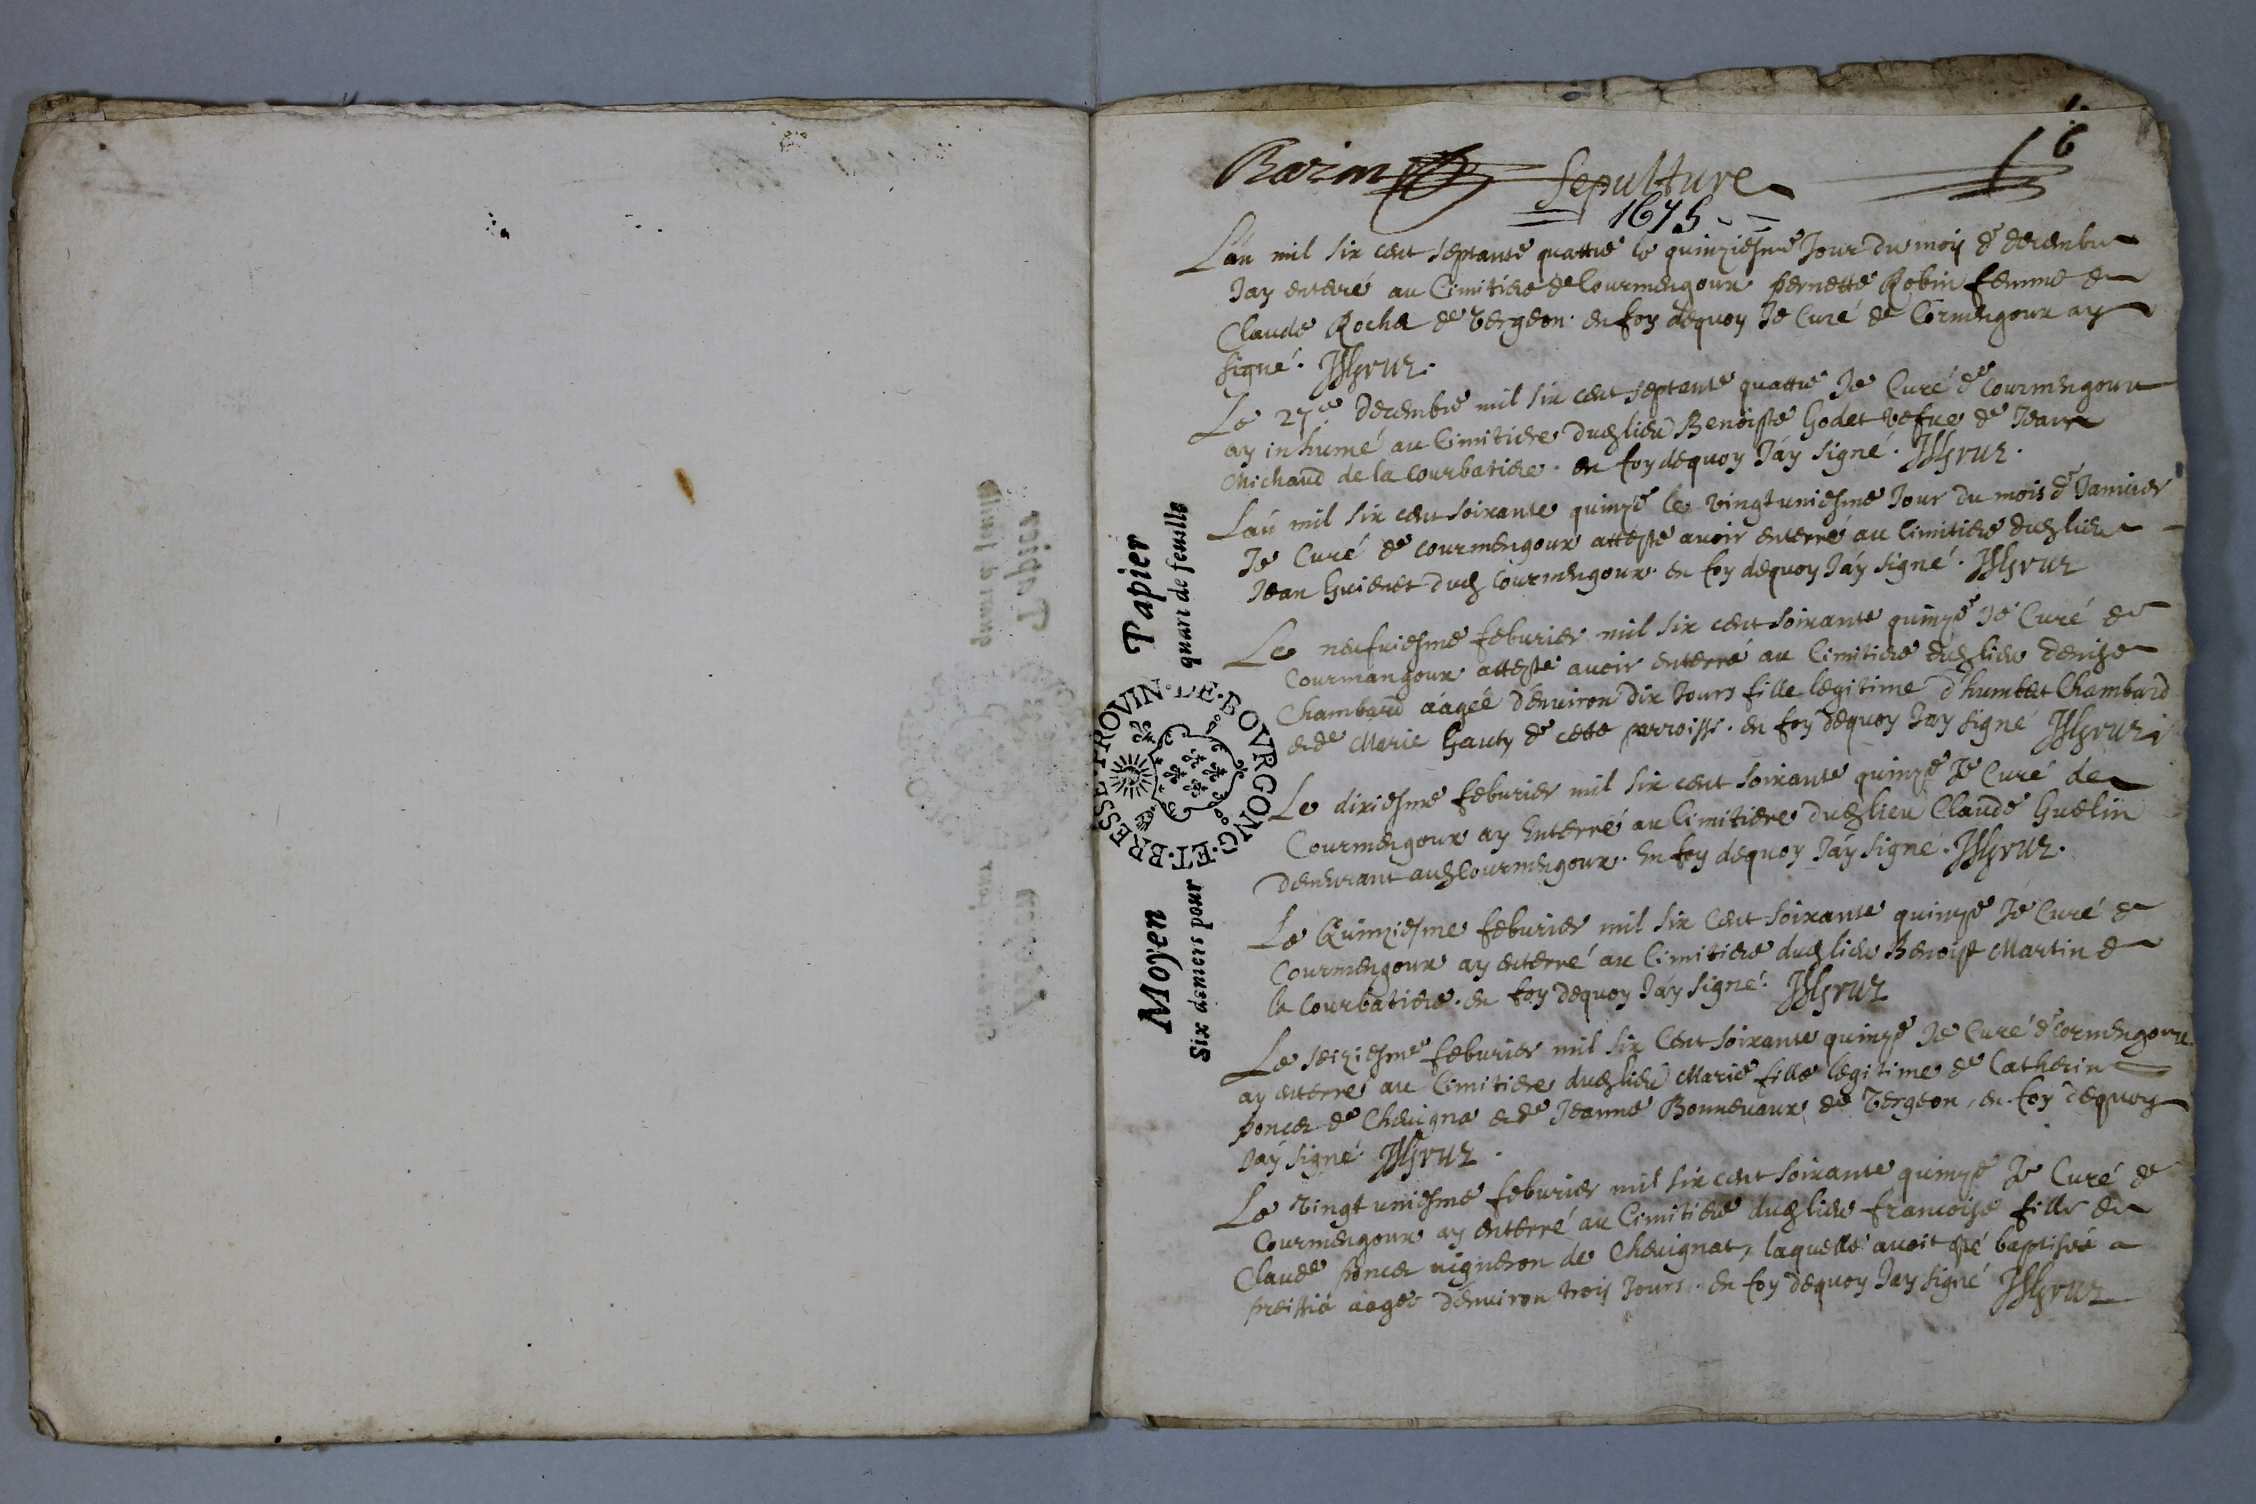 16
Sepulture
1675
L'an mil six cent septante quattre le quinziesme Jour du mois de decembre
Jay enterré au Cimitiere de Courmengoux pernette Robin femme de
Claude Rochet de Vergeon. en foy dequoy Je Curé de Cormengoux ay
signé.
Le 27e decembre mil six cent septante quattre Je Curé de Courmengoux
ay inhumé au Cimitiere dud lieu Benoiste Godet vefue de Jean
Michaud de la Courbatiere. en foy dequoy J'ay signé.
L'an mil six cent soixante quinze le vingt uniesme Jour du mois de Januier
Je Curé de Courmengoux atteste auoir enterré au Cimitiere dud lieu
Jean Guienet dud Courmengoux. en foy dequoy J'ay signé.
Le neufuiesme feburier mil six cent soixante quinze Je Curé de
Courmangoux atteste auoir enterré au Cimitiere dud lieu denise
Chambard aagée d'enuiron dix Jours fille legitime d'humbert Chambard
et de Marie Gauty de cette parroisse. en foy dequoy Jay signé
Le dixiesme feburier mil six cent soixante quinze Je Curé de
Courmengoux ay Enterré au Cimitiere dud lieu Claude Guelin
demeurant aud Courmengoux. En foy dequoy J'ay signé.
Le Quinziesme feburier mil six Cent soixante quinze Je Curé de
Courmengoux ay enterré au Cimitiere dud lieu Benoist Martin de
la Courbatiere. en foy dequoy J'ay signé.
Le seiziesme feburier mil six Cent soixante quinze Je Curé de Cormengoux
ay enterré au Cimitiere dud lieu Marie fille legitime de Catherin
poncet de Cheuigna et de Jeanne Bonneuaux de Vergeon, en foy dequoy
J'ay signé.
Le vingt uniesme feburier mil six cent soixante quinze Je Curé de
Courmengoux ay enterré au Cimitiere dud lieu francoise fille de
Claude poncet uigneron de Cheuignat, laquelle auoit esté baptisée a
preissia aagée d'enuiron trois Jours. en foy dequoy Jay signé
Moyen Papier
Six deniers pour quart de feuille
PROVIN·DE·BOVRGONG·ET·BRESSE